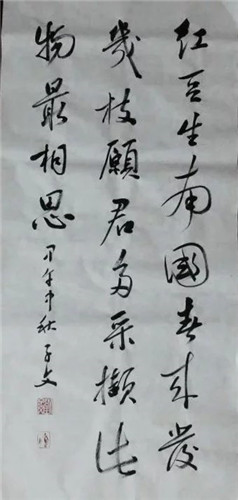 红豆生南國春来發
幾枝願君多采擷此
物最相思 甲午中秋 子文